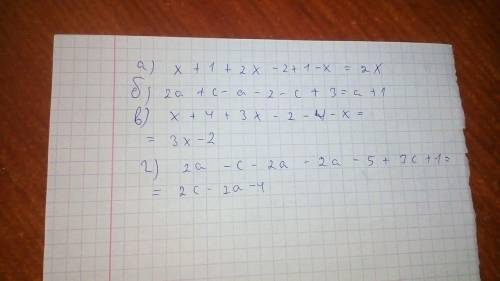 а) x + 1 + 2x - 2 + 1 - x = 2x
б) 2a + c - a - 2 - c + 3 = a + 1
в) x + 4 + 3x - 2 - 4 - x =
= 3x - 2
г) 2a - c - 2a - 2a - 5 + 3c + 1 =
= 2c - 2a - 4